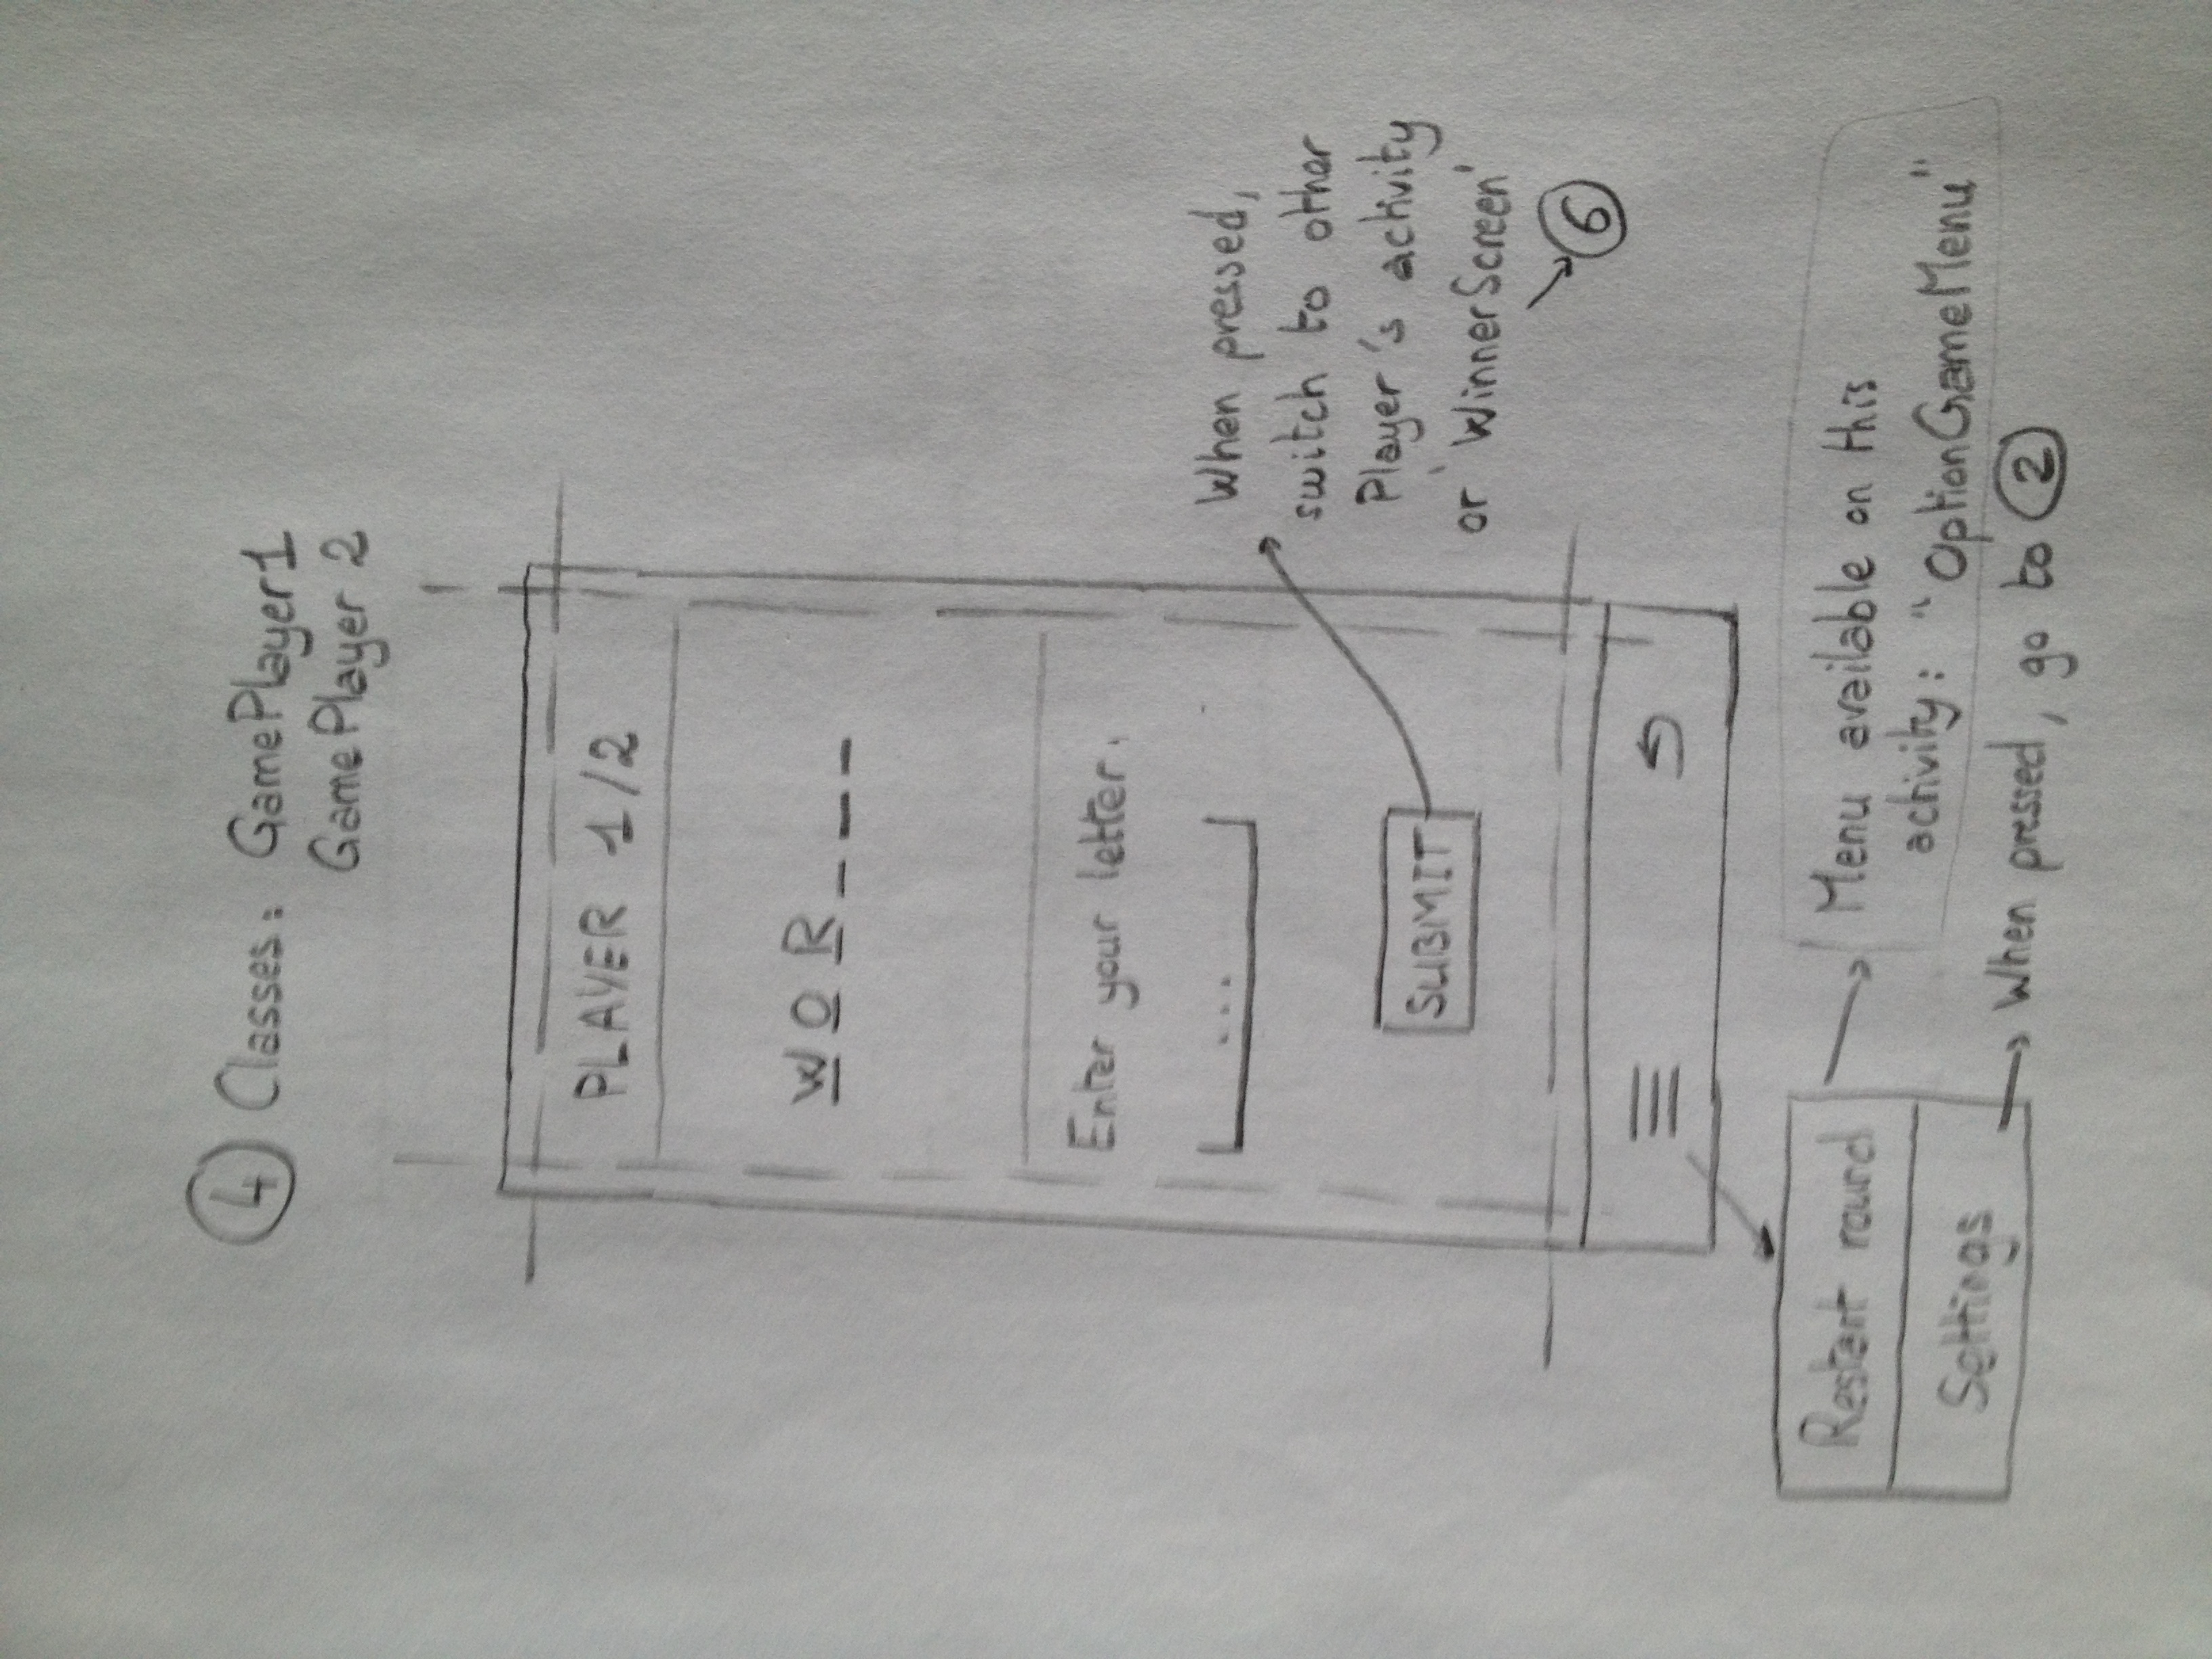 4 Classes: GamePlayer1
GamePlayer 2
PLAYER 1/2
W O R _ _ _
Enter your letter.
...
SUBMIT
When pressed,
switch to other
Player's activity
or 'WinnerScreen'
6
Restart round
Settings
Menu available on this
activity: "OptionGameMenu"
When pressed, go to 2